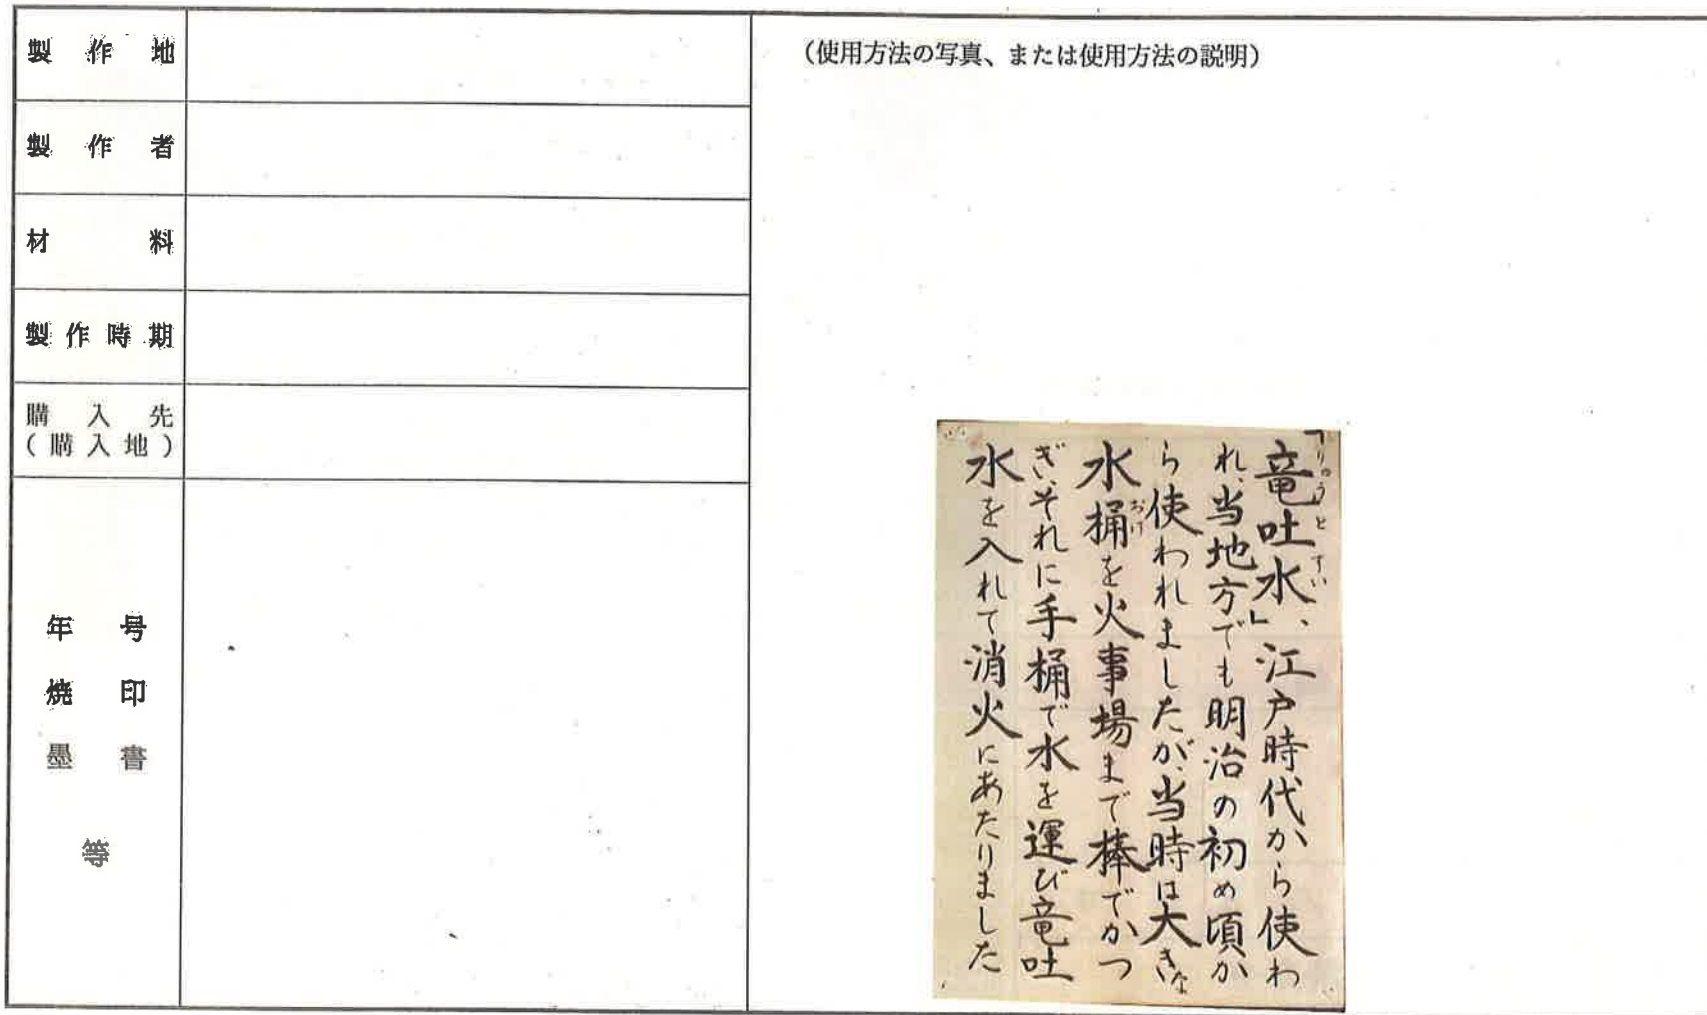 製作地
製作者
材料
製作時期
購入先
(購入地)
年号
焼印
墨書
等
(使用方法の写真、または使用方法の説明)
「竜吐水」、江戸時代から使わ
りゅうとすい
れ、当地方でも明治の初め頃か
ら使われましたが、当時は大きな
水桶を火事場まで棒でかつ
おけ
ぎ、それに手桶で水を運び竜吐
水を入れて消火にあたりました